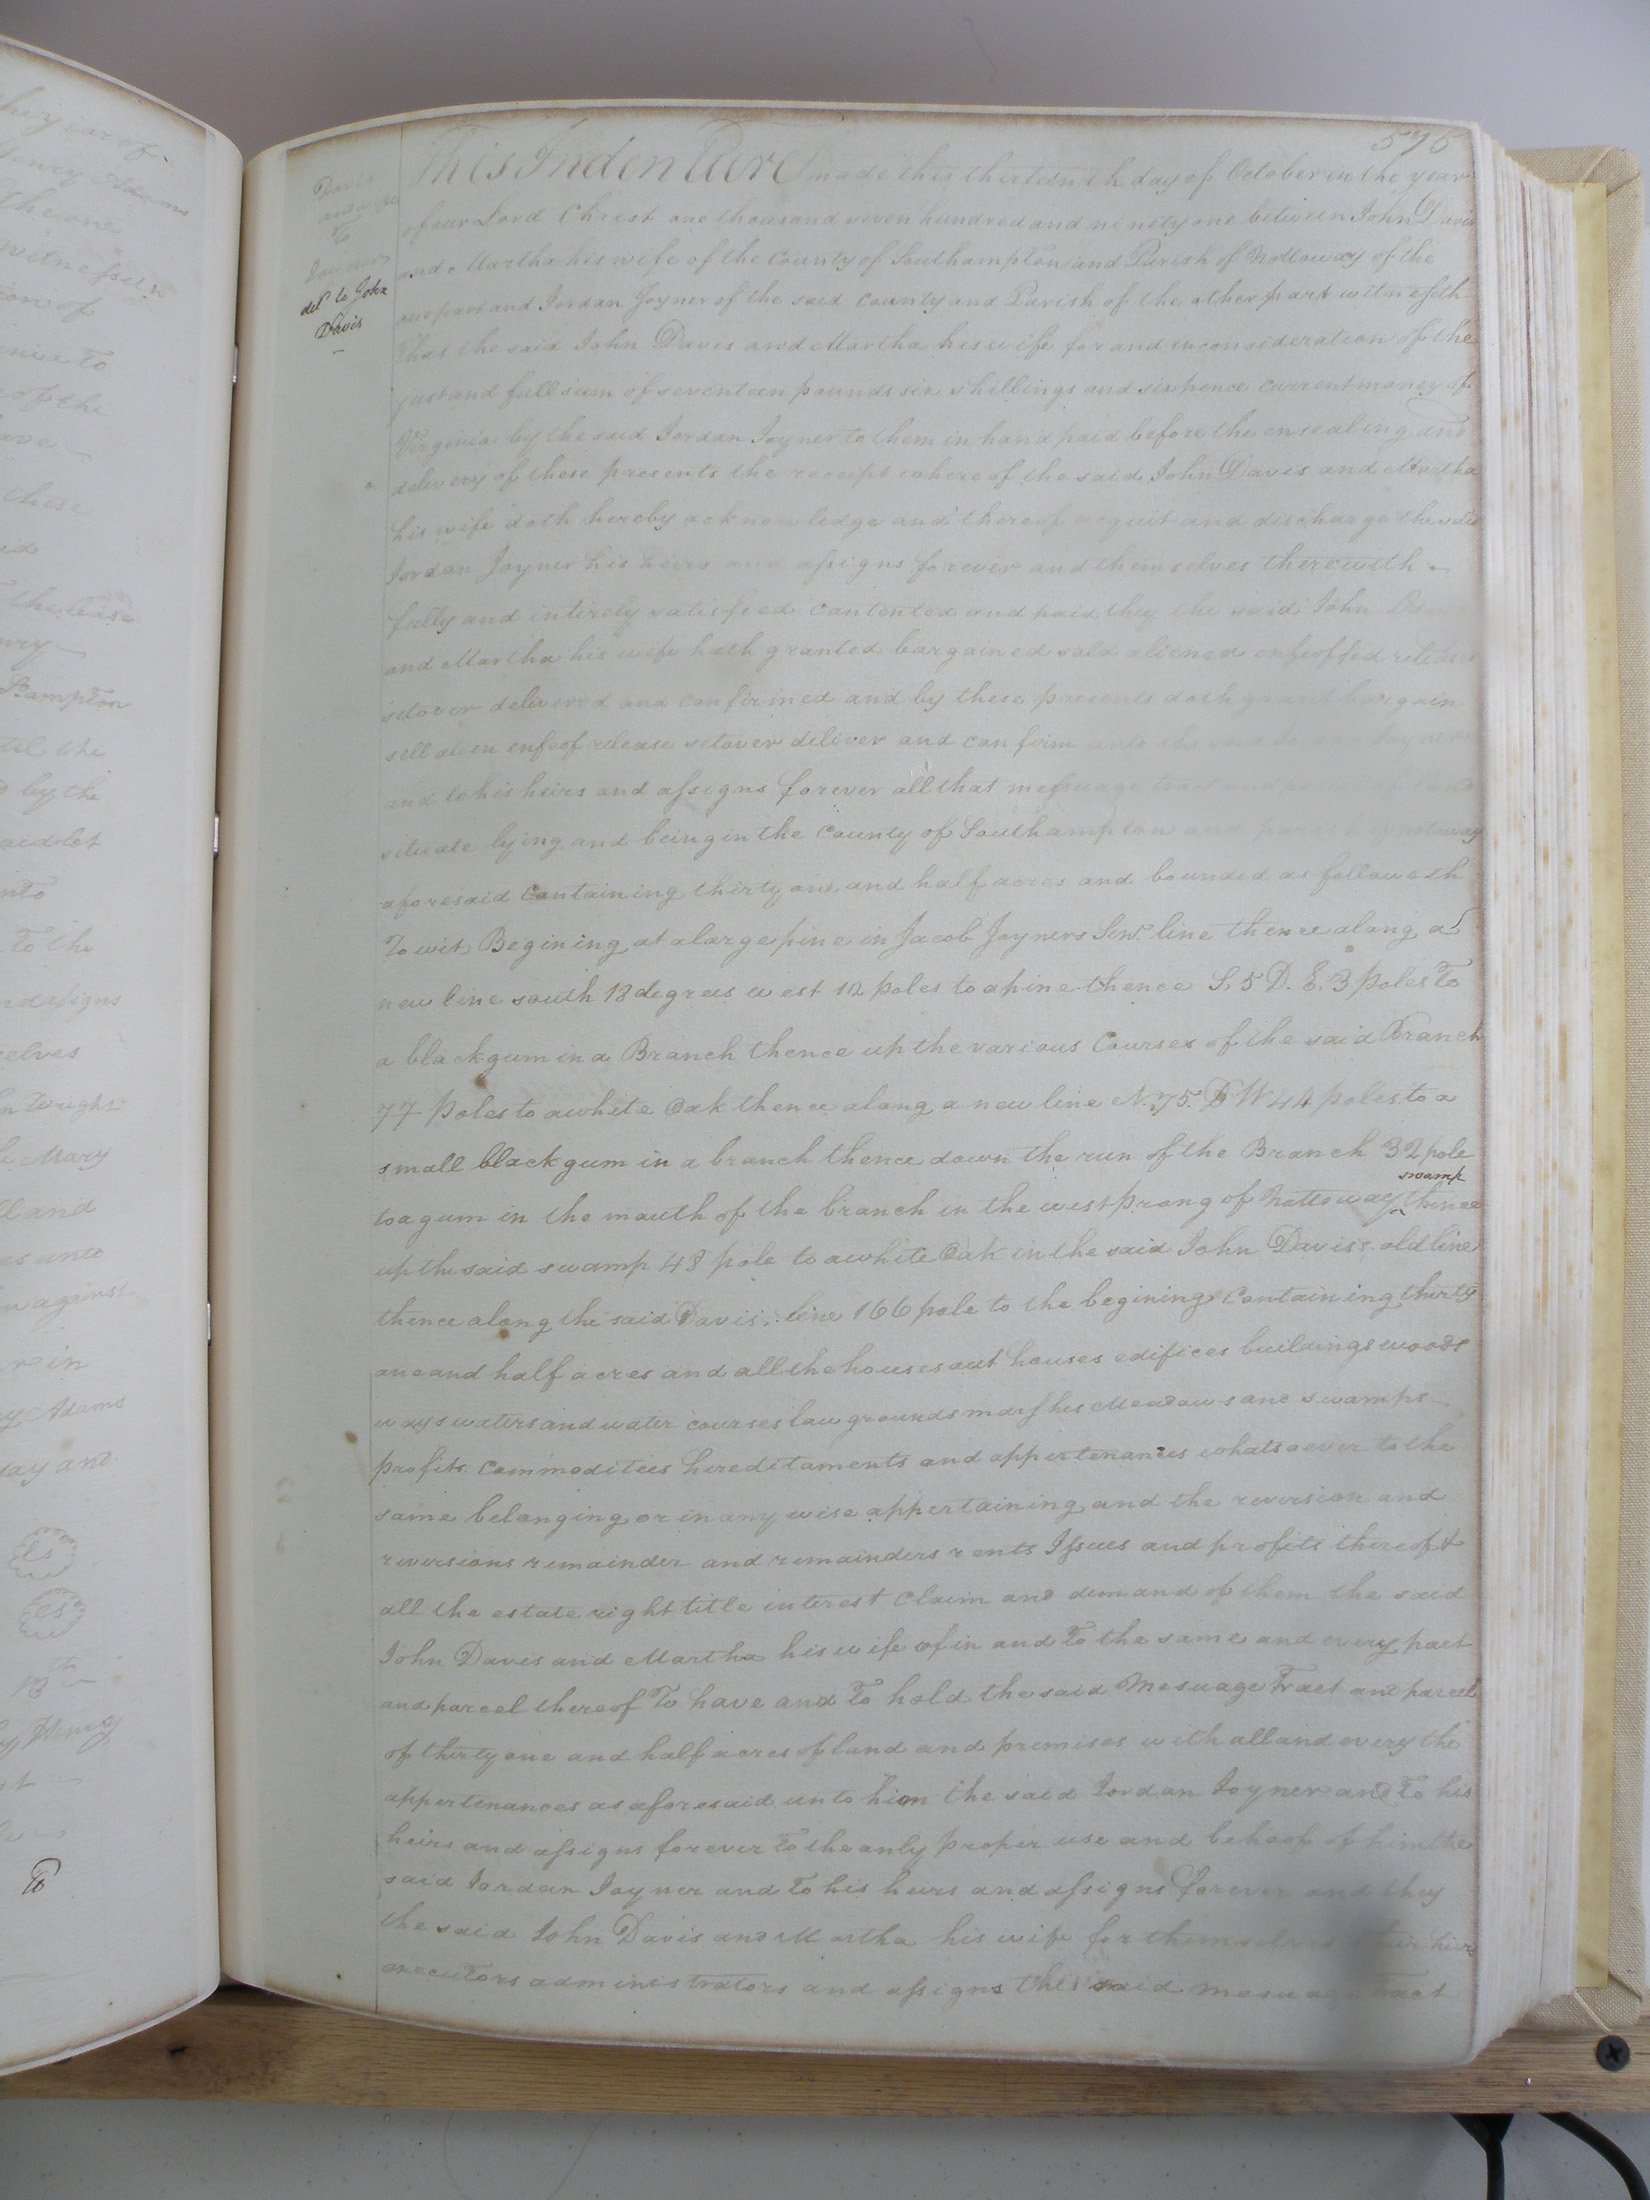 575
Davis
and wife
To
Joyner
del.d to John
Davis
This Indenture made this thirteenth day of October in the year
of our Lord Christ one thousand seven hundred and ninety one between John Davis
and Martha his wife of the County of Southampton and Parish of Nottoway of the
one part and Jordan Joyner of the said County and Parish of the other part witnesseth
that the said John Davis and Martha his wife for and in consideration of the
just and full sum of seventeen pounds six shillings and six pence current money of
Virginia by the said Jordan Joyner to them in hand paid before the ensealing and
delivery of these presents the receipt whereof the said John Davis and Martha
his wife doth hereby acknowledge and thereof acquit and discharge the said
Jordan Joyner his heirs and assigns forever and themselves therewith
fully and intirely satisfied contented and paid they the said John Davis
and Martha his wife hath granted bargained sold aliened enfeoffed released
setover deliver'd and confirmed and by these presents doth grant bargain
sell alien enfeof release setover deliver and confirm unto the said Jordan Joyner
and to his heirs and assigns forever all that messuage tract and parcel of land
situate lying and being in the County of Southampton and parish of notoway
aforesaid Containing thirty one and half acres and bounded as followeth
To wit, Begining at a large pine in Jacob Joyners Sen.r line thence along a
new line south 18 degrees west 12 poles to a pine thence S. 5 D. E. 3 poles To
a black gum in a Branch thence up the various Courses of the said Branch
77 Poles to a white Oak thence along a new line N. 75. D W 44 poles to a
small black gum in a branch thence down the run of the Branch 32 pole
to a gum in the mouth of the branch in the west prong of Nottoway ^swamp thence
up the said swamp 48 pole to a white Oak in the said John Davis's old line
thence along the said Davis's line 166 pole to the begining Containing thirty
one and half acres and all the houses out houses edifices buildings woods
ways waters and water courses law grounds marshes Meadows and swamps
profits Commoditees hereditaments and appertenances whatsoever to the
same belonging or in any wise appertaining and the reversion and
reversions remainder and remainders rents Issues and profits thereof &
all the estate right title interest Claim and demand of them the said
John Davis and Martha his wife of in and To the same and every part
and parcel thereof To have and To hold the said Mesuage Tract and parcel
of thirty one and half acres of land and premises with all and every the
appertenances as aforesaid unto him the said Jordan Joyner and To his
heirs and assigns forever To the only proper use and behoof of him the
said Jordan Joyner and To his heirs and assigns forever and they
the said John Davis and Martha his wife for themselves their heirs
executors administrators and assigns the said mesuage Tract